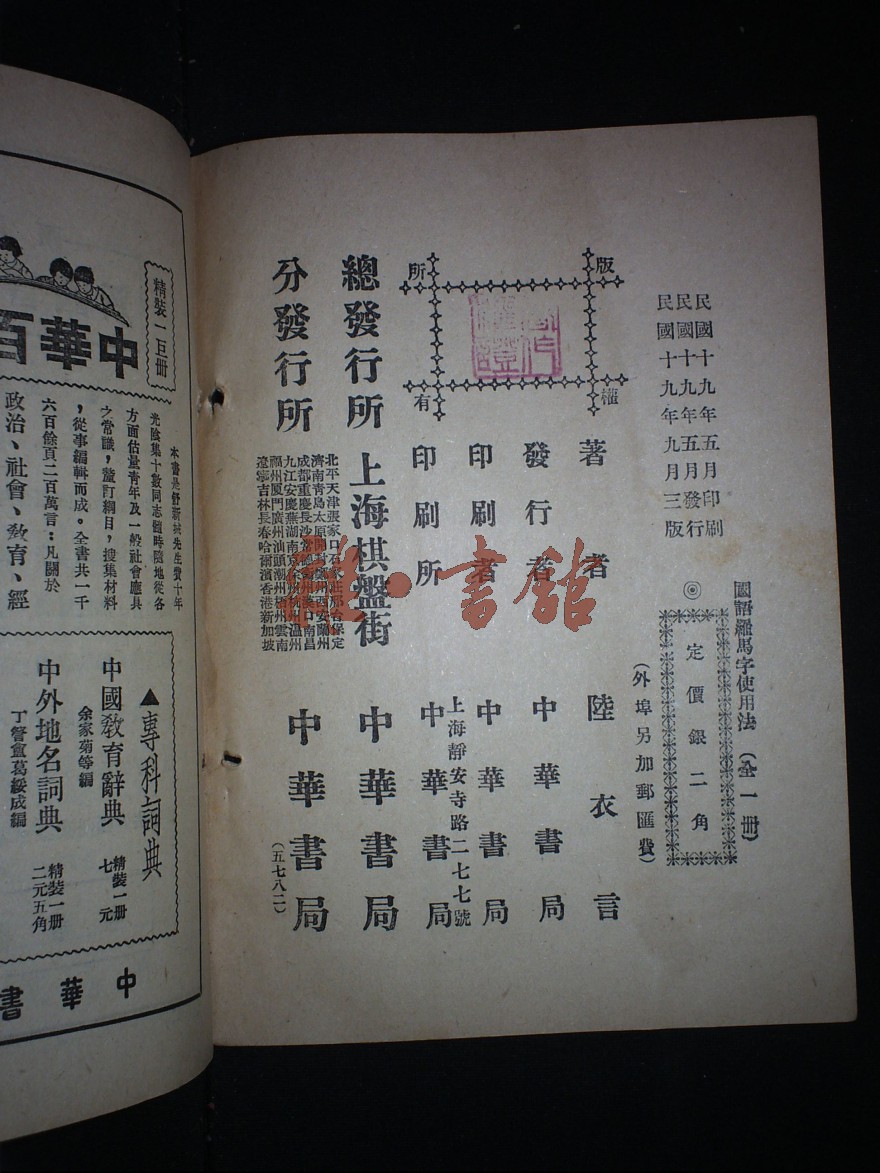 民國十九年五月印刷
民國十九年五月發行
民國十九年九月三版
國語羅馬字使用法（全一冊）
◎定價銀二角
（外埠另加郵匯費）
版權所有
著者 陸衣言
發行者 中華書局
印刷者 中華書局
上海靜安寺路二七七號
印刷所 中華書局
總發行所 上海棋盤街 中華書局
分發行所 中華書局
北平天津張家口石家莊邢台保定
濟南青島太原開封鄭州西安蘭州
成都重慶長沙常德衡州漢口南昌
九江安慶蕪湖南京徐州杭州溫州
福州厦門廣州汕頭潮州梧州雲南
遼寧吉林長春哈爾濱香港新加坡
（五七八二）
書館
精裝一百冊
中華百
本書是舒新城先生費十年
光陰集十數同志隨時隨地從各
方面估量青年及一般社會應具
之常識，釐訂綱目，搜集材料
，從事編輯而成。全書共一千
六百餘頁二百萬言：凡關於
政治、社會、教育、經
▲專科詞典
中國教育辭典
余家菊等編
精裝一冊
七元
中外地名詞典
丁詧盦葛綏成編
精裝一冊
二元五角
中華書